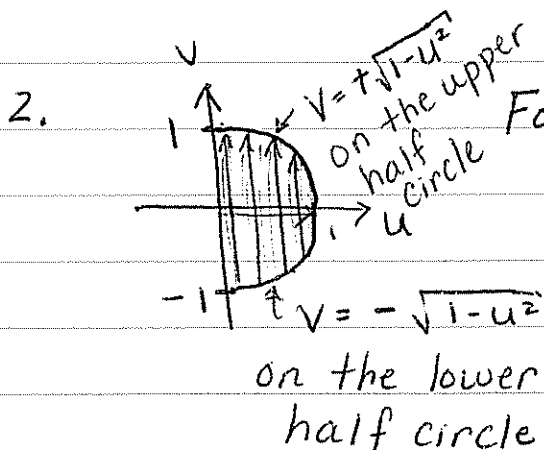 2.
V
1
V = +√1-u²
on the upper
half
circle
Fo
u
1
-1
V = - √1-u²
on the lower
half circle